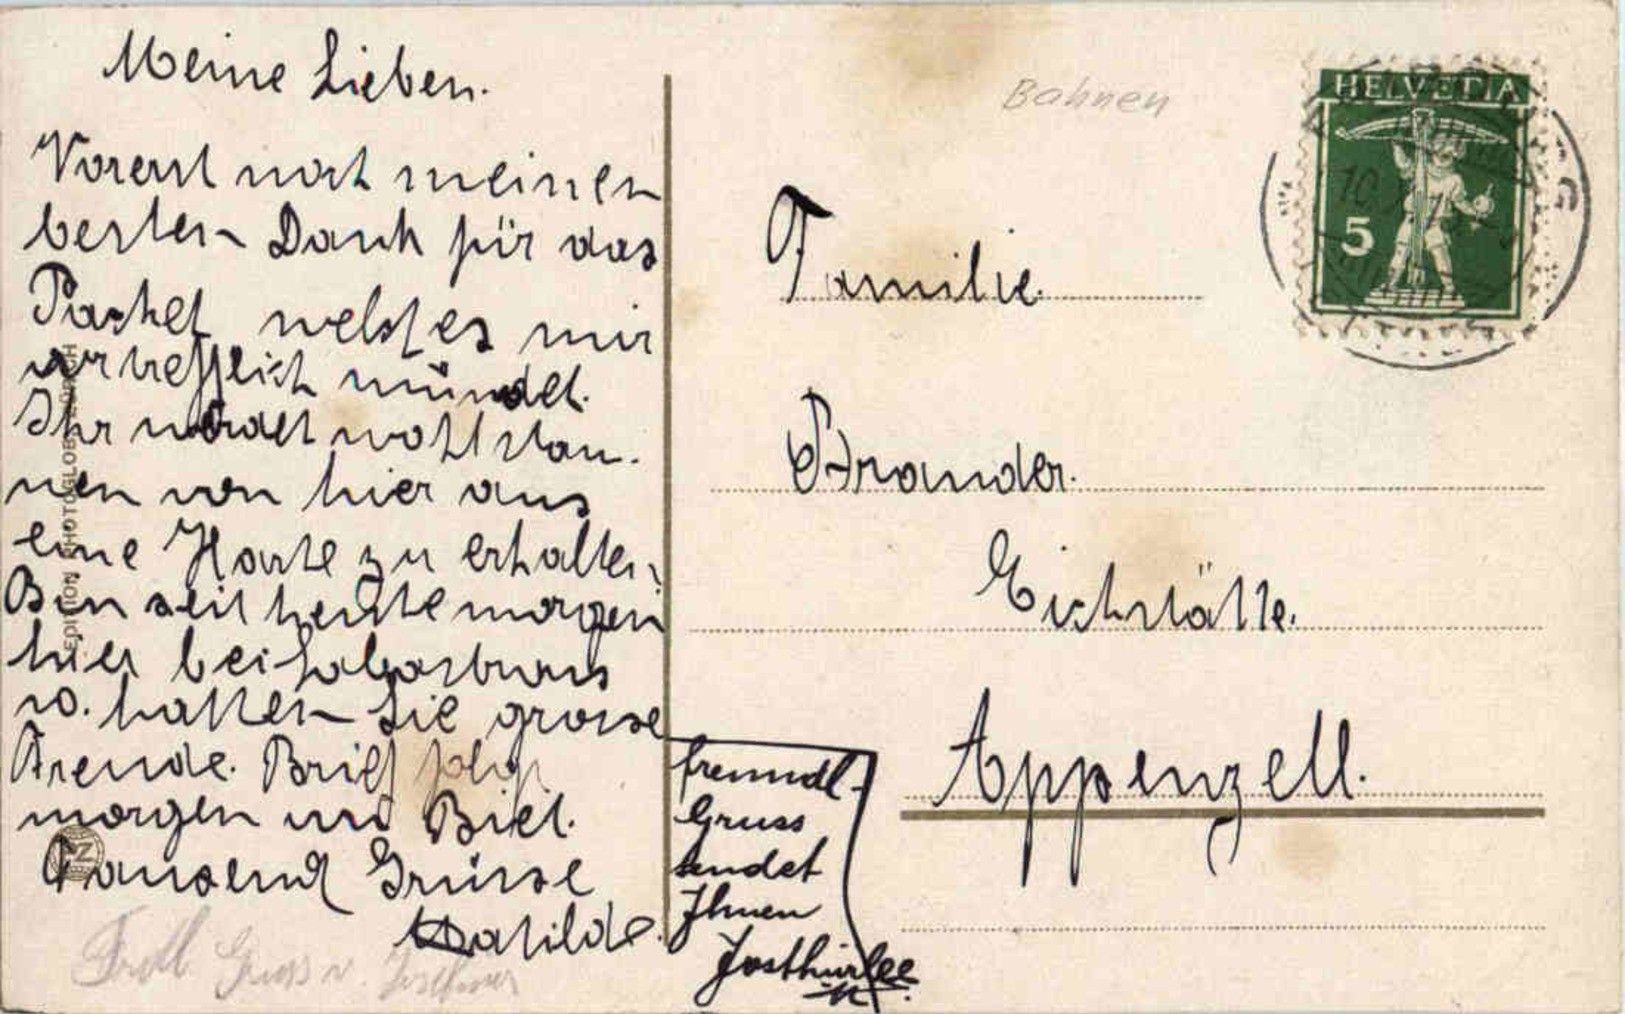 Meine Lieben.
Vorerst noch meinen
besten Dank für das
Packet welches mir
vortrefflich mündet.
Ihr werdet wohl stau-
nen von hier aus
eine Karte zu erhalten.
Bin seit heute morgen
hier bei
u. hatten Sie grosse
Freude. Brief folgt
morgen von Biel.
Tausend Grüsse
Matilde.
Frdl Gruss v.
freundl.
Gruss
sendet
Ihnen
Bahnen
HELVETIA
5
Familie
Brander.
Eichstätte.
Appenzell.
EDITION PHOTOGLOB ZÜRICH